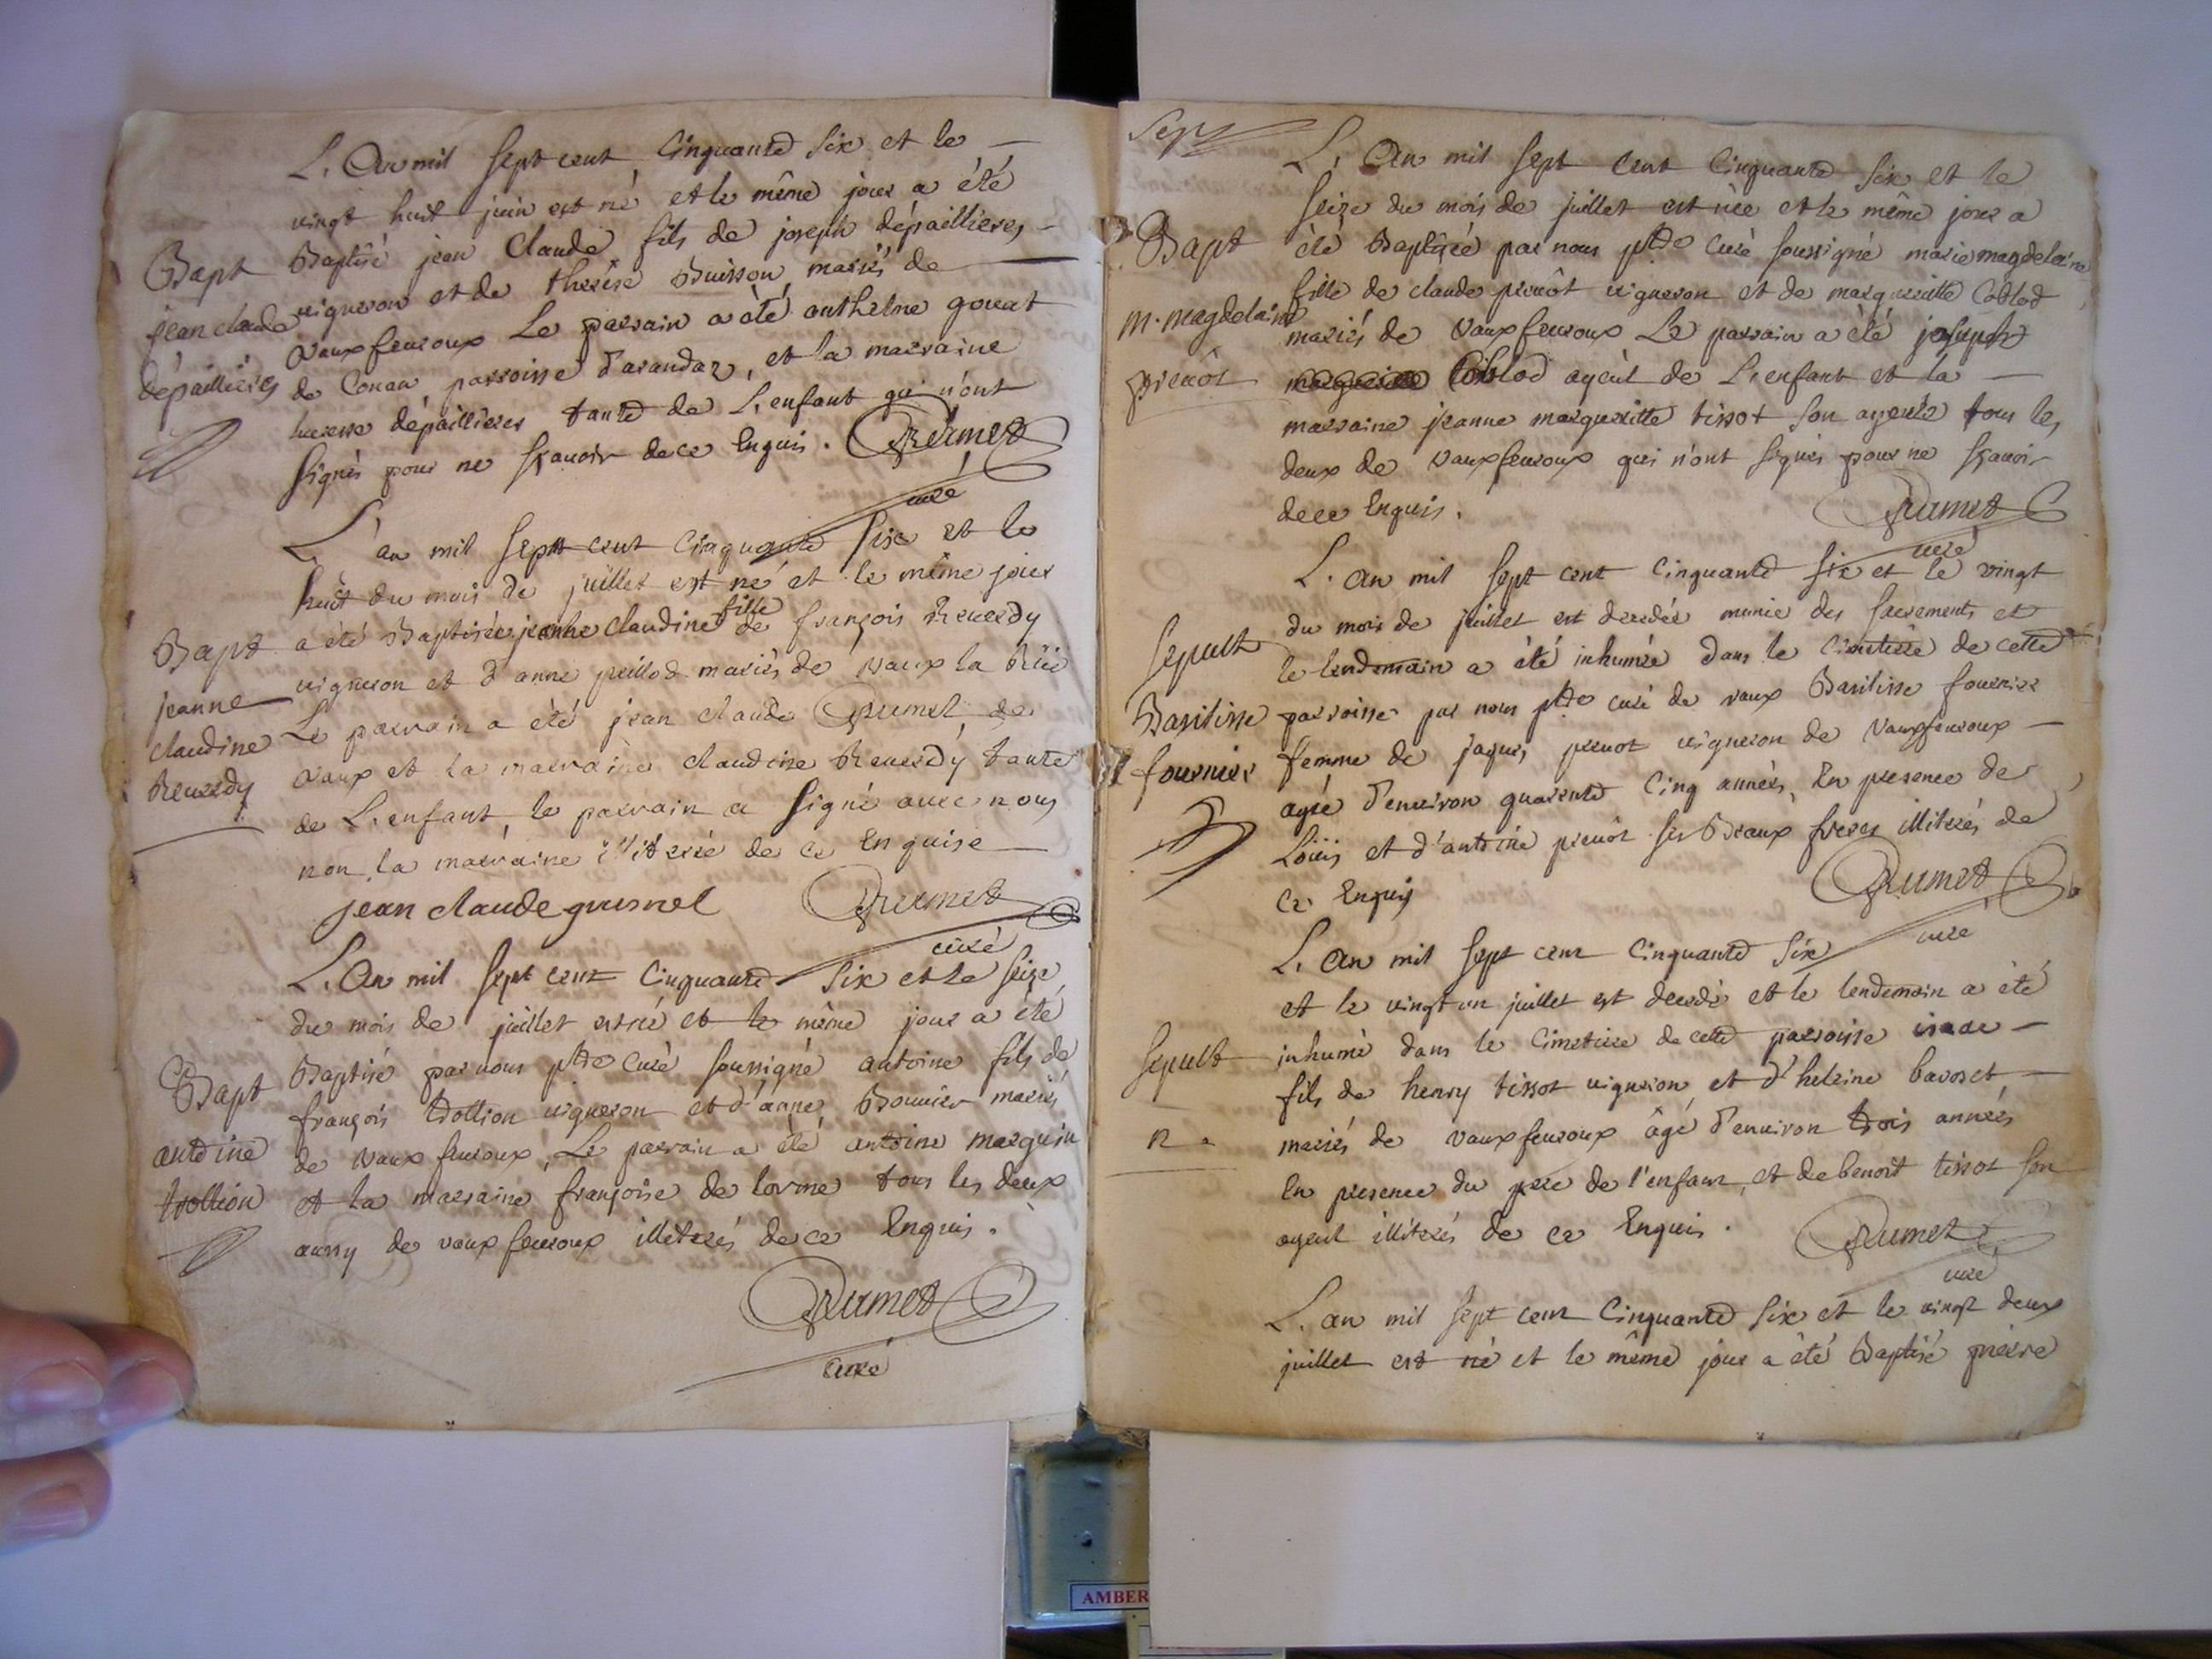 L'An mil sept cent cinquante six et le
vingt huit juin est né et le même jour a été
Bapt
Baptisé jean Claude fils de joseph dépaillieres
jean claude
vigneron et de therese Buisson mariés de
vauxfeuroux Le parrain a été anthelme gouat
dépaillieres
de Conan parroisse d'arandaz, et la marraine
dépaillieres tante de L'enfant qui n'ont
signés pour ne sçavoir de ce Enquis. Brumet
curé
L'an mil sept cent cinquante six et le
huit du mois de juillet est né et le même jour
fille
Bapt
a été Baptisée jeanne claudine de françois Reverdy
vigneron et d'anne peillod mariés de vaux la Rüe
jeanne
Le parrain a été jean claude Grumet de
claudine
vaux et la marraine claudine Reverdy tante
Reverdy
de L'enfant le parrain a signé avec nous
non la marraine illiterée de ce Enquise
jean claude grumel Brumet
curé
L'An mil sept cent cinquante six et le seize
du mois de juillet est né et le même jour a été
Bapt
Baptisé par nous ptre curé soussigné antoine fils de
françois trollion vigneron et d'anne Bouvier mariés
antoine
de vaux feuroux, Le parrain a été antoine marguin
trollion
et la marraine françoise de lorme tous les deux
aussy de vaux feuroux illiterés de ce Enquis.
Brumet
curé
Sep
L'An mil sept cent cinquante six et le
seize du mois de juillet est née et le même jour a
Bapt
été Baptisée par nous ptre curé soussigné marie magdelaine
fille de claude prevôt vigneron et de marguerite Coblod
m. magdelaine
mariés de vauxfeuroux Le parrain a été joseph
prevôt
Coblod ayeül de L'enfant et la
marraine jeanne marguerite tissot son ayeule tous les
deux de vauxfeuroux qui n'ont signés pour ne sçavoir
de ce Enquis.
Brumet
curé
L'an mil sept cent cinquante six et le vingt
du mois de juillet est decedée munie des sacrements et
Sepult
le lendemain a été inhumée dans le Cimetiere de cette
Basilisse
parroisse par nous ptre curé de vaux Basilisse fournier
femme de jaques prevot vigneron de vauxfeuroux
fournier
agée d'environ quarente cinq années, En presence de
Loüis et d'antoine prevôt ses Beaux freres illiterés de
ce Enquis
Brumet
curé
L'An mil sept cent cinquante six
et le vingt un juillet est decedé et le lendemain a été
Sepult
inhumé dans le Cimetiere de cette parroisse
fils de henry tissot vigneron et d'heleine baroset
mariés de vauxfeuroux âgé d'environ trois années
En presence du pere de l'enfant et de benoit tissot son
ayeul illiterés de ce Enquis.
Brumet
curé
L'an mil sept cent cinquante six et le vingt deux
juillet est né et le même jour a été Baptisé pierre
AMBER